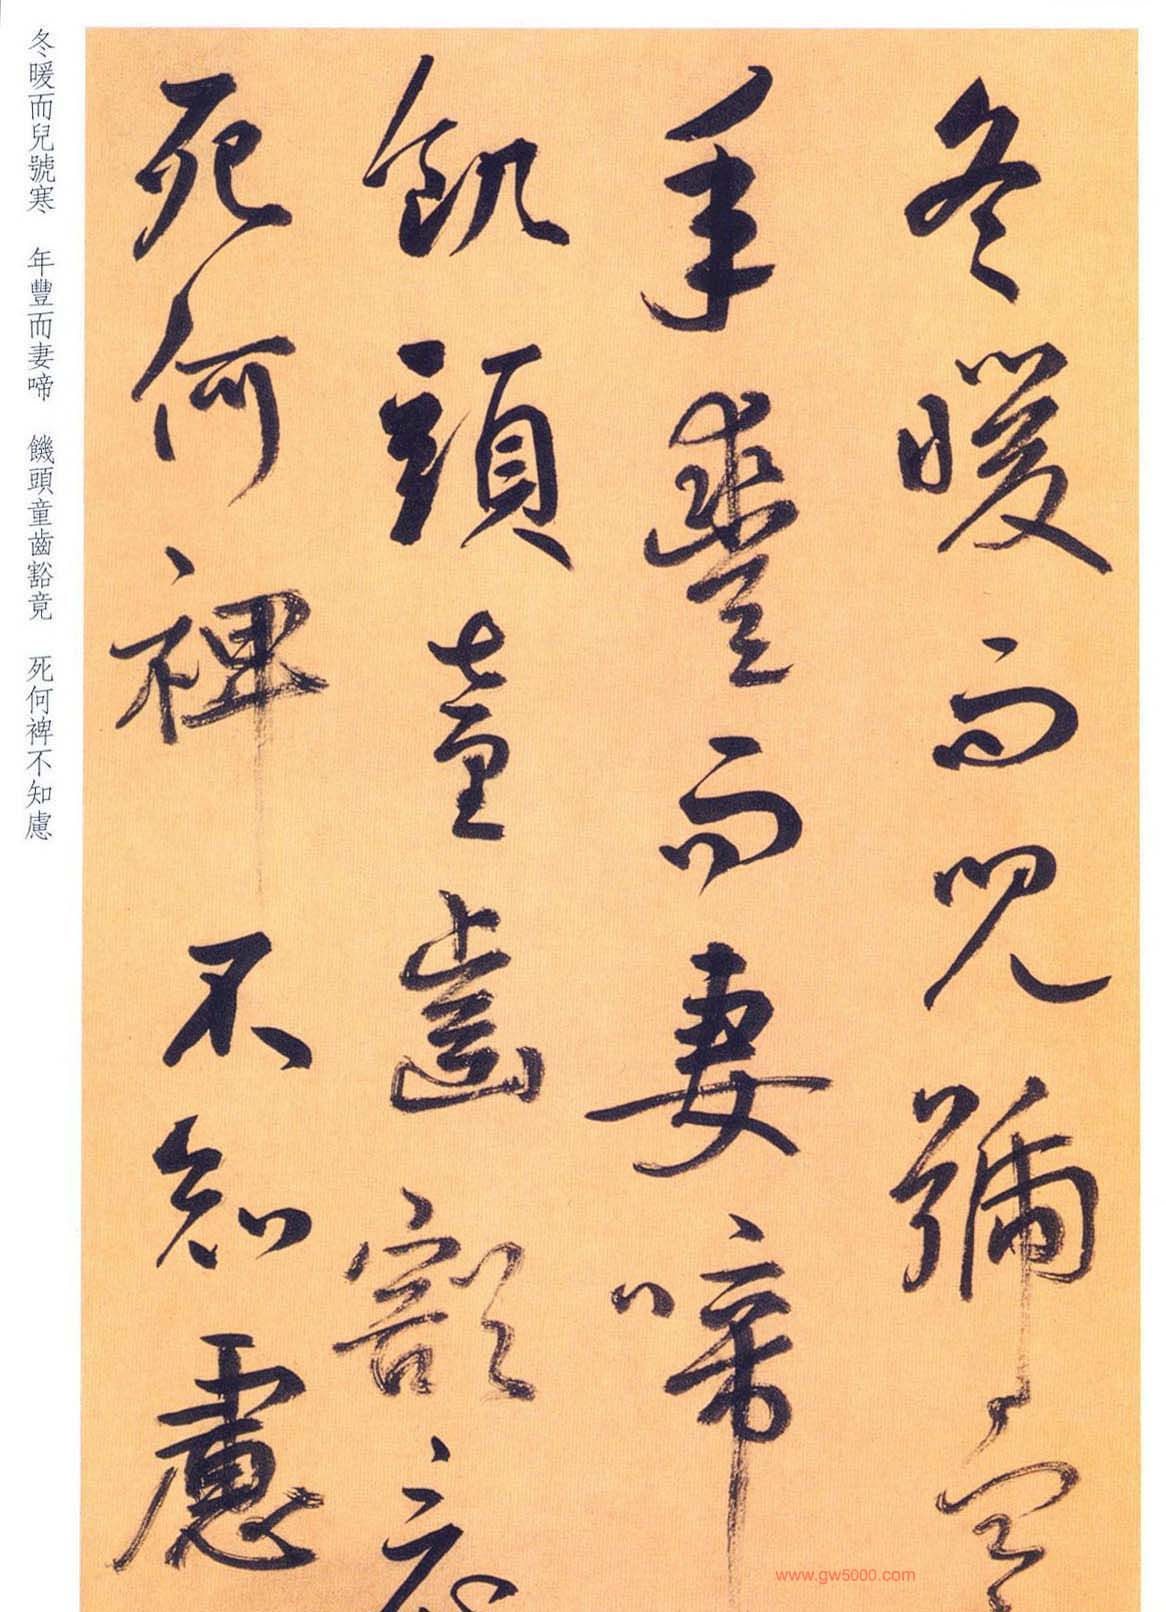 冬暖而兒號寒
年豐而妻啼
飢頭童齒豁竟
死何裨不知慮
冬暖而兒號寒 年豐而妻啼 饑頭童齒豁竟 死何裨不知慮
www.gw5000.com